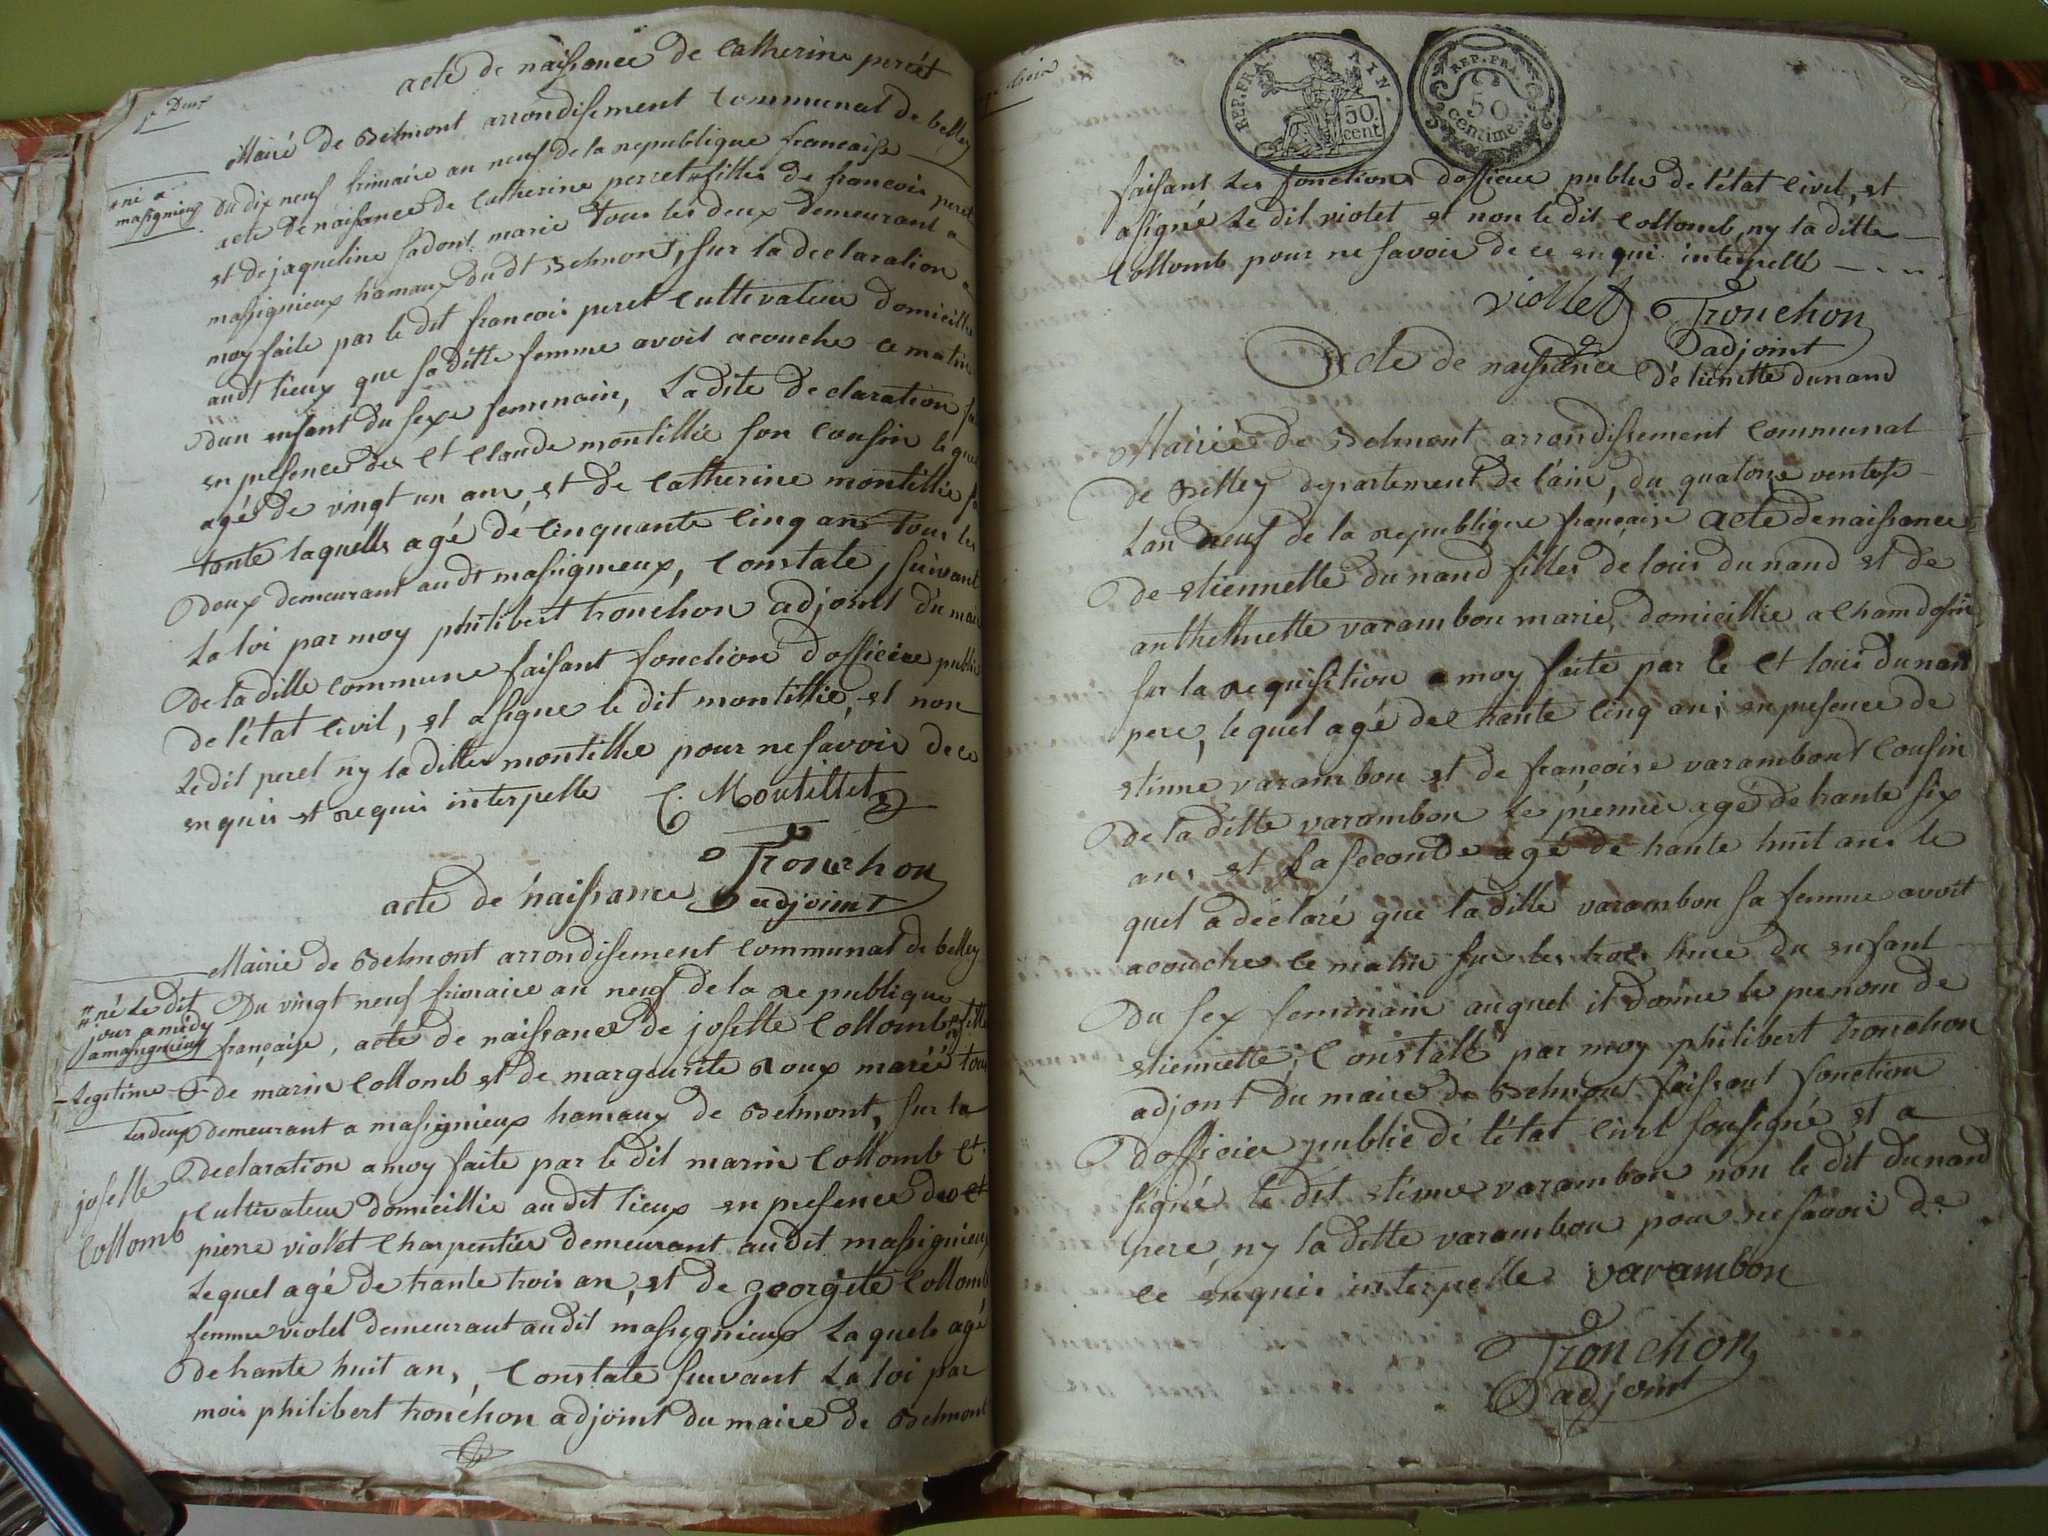 acte de naissance de Catherine perret
f. Deux
Mairie de Belmont arrondissement communal de belley
Du dix neuf frimaire an neuf de la republique francaise
né a
massignieux
acte de naissance de Catherine perret fille de francois peret
et de jaqueline fadont marie tous les deux demeurant a
massignieux hamaux du dt Belmont, sur la declaration a
moy faite par le dit francois peret cultivateur domicillie
audt lieux que sa ditte femme avoit acouche ce matin
dun enfant du sexe femenain, Ladite declaration
en presence des Ct Claude montillie son cousin le quel
agé de vingt un ans, et de Catherine montillie sa
tante laquelle agé de cinquante cinq ans tous les
deux demeurant audt massignieux, Constaté, suivant
La loi par moy philibert tronchon adjoint du maire
de la ditte commune faisant fonction dofficier public
de létat civil, et a signe le dit montillie, et non
Le dit peret ny la ditte montillie pour ne savoir de ce
enquis et requis interpelle C. Montillet
Tronchon
adjoint
acte de naissance
Mairie de Belmont arrondissement communal de belley
# né Le dit
jour a midy
a massignieux
Du vingt neuf frimaire an neuf de la republique
française, acte de naissance de josette Collomb # fille
Legitime de marin Collomb et de margueritte Roux marié tous
Les deux demeurant a massignieux hamaux de Belmont, sur la
declaration a moy faite par le dit marin Collomb Ct
josette
Collomb
cultivateur domicillie au dit lieux en presence des Ct
pierre viollet charpentier demeurant audit massignieux
Lequel agé de trante trois an, et de georgete Collomb
femme violet demeurant audit massignieux Laquele agé
de trante huit an, Constate suivant La loi par
mois philibert tronchon adjoint du maire de Belmont
REP. FRA. AIN.
50
cent
REP. FRA.
50
centimes
faisant Les fonctions dofficier public de létat civil, et
a signé Le dit violet et non le dit Collomb, ny la ditte
Collomb pour ne savoir de ce enqui interpellé
viollet Tronchon
adjoint
Acte de naissance détienette dunand
Mairie de Belmont arrondissement communal
de Belley departement de l'ain, du quatorze ventose
Lan neuf de la republique française acte de naissance
de etiennette dunand filles de louis dunand et de
anthelmette varambon marie, domicillie a Chamdossin
sur la requisition a moy faite par le Ct louis dunand
pere, lequel agé de trante cinq an; en presence de
etinne varambon et de françoise varambont cousin
de la ditte varambon le premier agé de trante six
an, et La seconde agé de trante huit an. le
quel a declaré que la ditte varambon sa femme avoit
acouche ce matin sur les trois hure du enfant
du sex feminain auquel il donne le prenom de
etiennette; Constaté par moy philibert tronchon
adjont du maire de Belmont faissant fonction
d'officier public de l'état civil sousigné et a
signé le dit etinne varambon non le dit dunand
pere, ny la ditte varambon pour ne savoir de
ce enquis interpelle varambon
Tronchon
adjoint